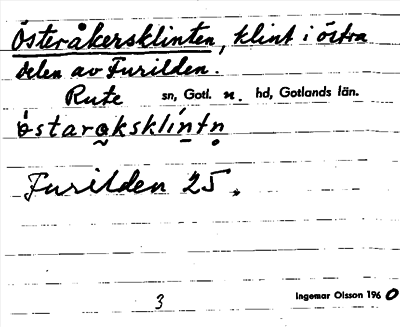 Österåkersklinten, klint i östra
delen av Furilden.
Rute sn, Gotl. n. hd, Gotlands län.
östarąksklíntn̥
Furilden 25.
3
Ingemar Olsson 1960